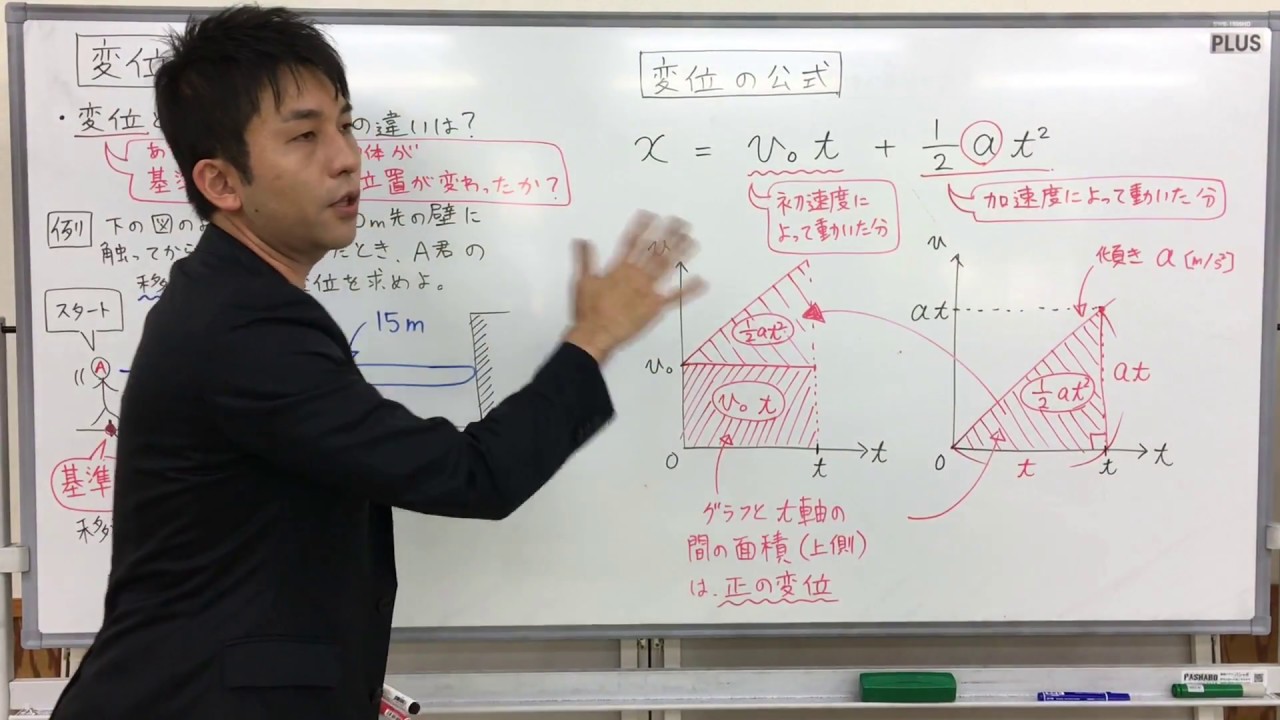 変位
・変位と の違いは?
あ 体が
基準 位置が変わったか?
例 下の図のよ 0m先の壁に
触ってから たとき、A君の
移 変位を求めよ。
スタート
15m
A
基準
移
PLUS
変位の公式
x = v₀t + 1/2 at²
初速度に
よって動いた分
加速度によって動いた分
v
1/2 at²
v₀
v₀ t
0
t
t
グラフとt軸の
間の面積(上側)
は、正の変位
v
傾き a [m/s²]
at
at
1/2 at²
0
t
t
t
PASHARO